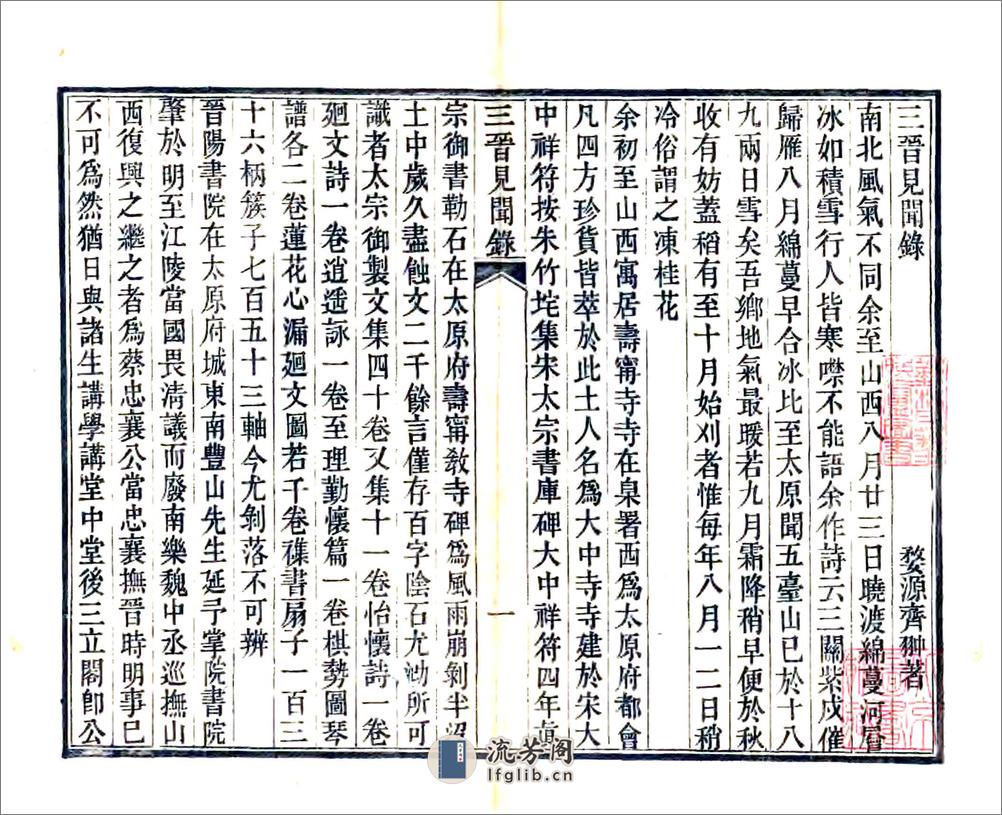 三晉見聞錄
婺源齊翀著
南北風氣不同余至山西八月廿三日曉渡綿蔓河層
冰如積雪行人皆寒噤不能語余作詩云三關紫戍催
歸雁八月綿蔓早合冰比至太原聞五臺山已於十八
九兩日雪矣吾鄉地氣最暖若九月霜降稍早便於秋
收有妨蓋稻有至十月始刈者惟每年八月一二日稍
冷俗謂之凍桂花
余初至山西寓居壽甯寺寺在臬署西爲太原府都會
凡四方珍貨皆萃於此土人名爲大中寺寺建於宋大
中祥符按朱竹垞集宋太宗書庫碑大中祥符四年眞
三晉見聞錄
一
宗御書勒石在太原府壽甯教寺碑爲風雨崩剝半沼
土中歲久盡蝕文二千餘言僅存百字陰石尤泐所可
識者太宗御製文集四十卷又集十一卷怡懷詩一卷
廻文詩一卷逍遙詠一卷至理勤懷篇一卷棋勢圖琴
譜各二卷蓮花心漏廻文圖若千卷襍書扇子一百三
十六柄簇子七百五十三軸今尤剝落不可辨
晉陽書院在太原府城東南豐山先生延予掌院書院
肇於明至江陵當國畏清議而廢南樂魏中丞巡撫山
西復興之繼之者爲蔡忠襄公當忠襄撫晉時明事已
不可爲然猶日與諸生講學講堂中堂後三立閣卽公
流芳阁
lfglib.cn